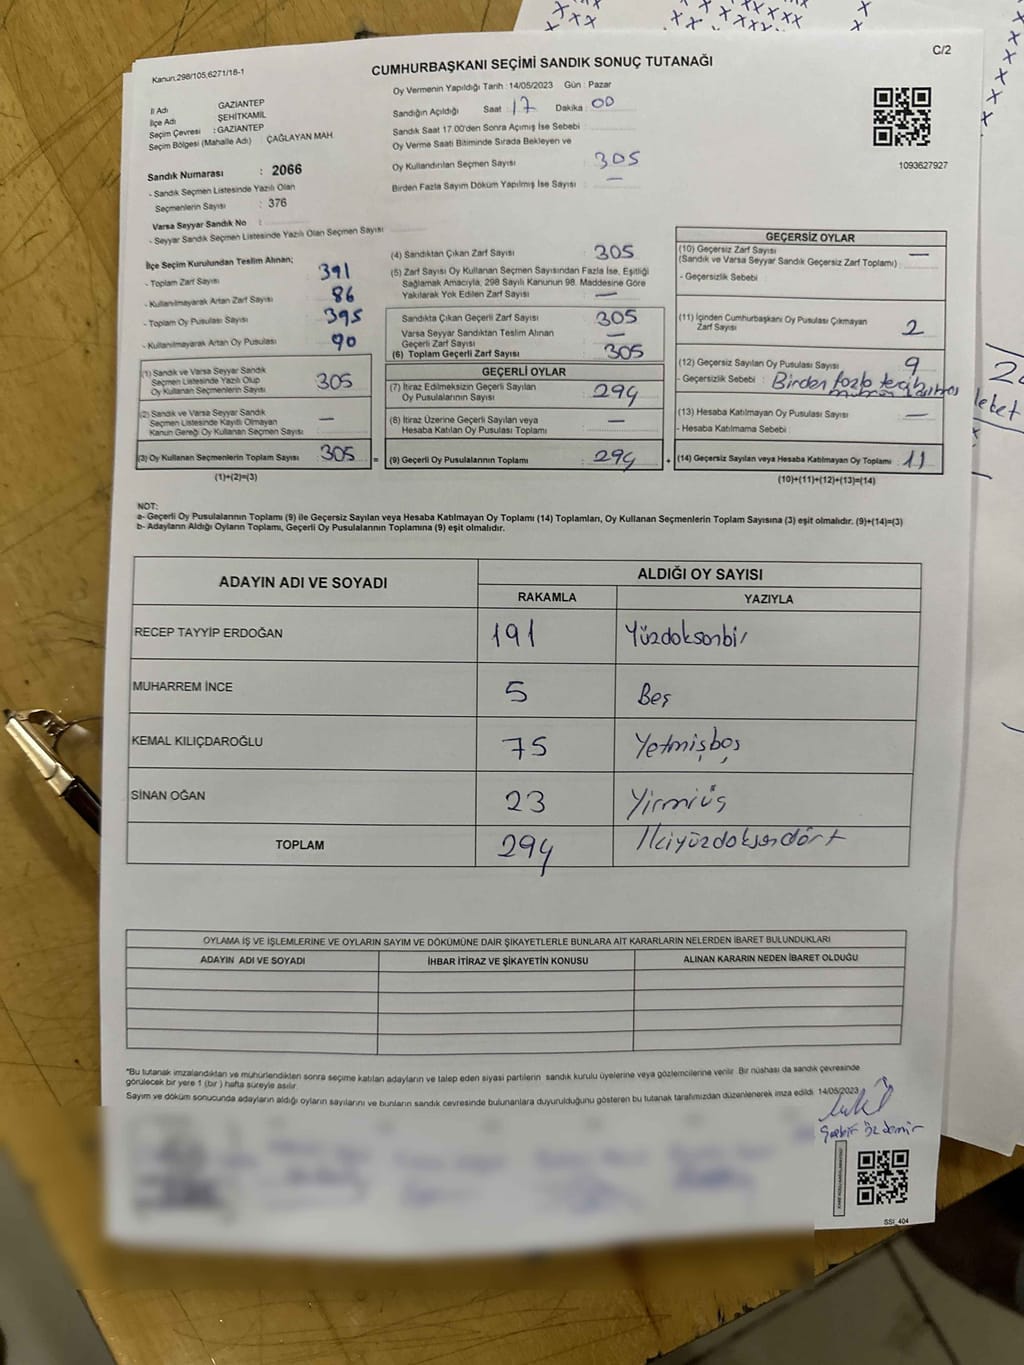 Kanun;298/105;6271/16-1
C/2
CUMHURBAŞKANI SEÇİMİ SANDIK SONUÇ TUTANAĞI
İl Adı GAZİANTEP
İlçe Adı ŞEHİTKAMİL
Seçim Çevresi : GAZİANTEP
Seçim Bölgesi (Mahalle Adı) ÇAĞLAYAN MAH.
Sandık Numarası : 2066
- Sandık Seçmen Listesinde Yazılı Olan
Seçmenlerin Sayısı : 376
Varsa Seyyar Sandık No :
- Seyyar Sandık Seçmen Listesinde Yazılı Olan Seçmen Sayısı :
Oy Vermenin Yapıldığı Tarih :14/05/2023 Gün : Pazar
Sandığın Açıldığı Saat : 17 Dakika : 00
Sandık Saat 17.00'den Sonra Açımış İse Sebebi :
Oy Verme Saati Bitiminde Sırada Bekleyen ve
Oy Kullandırılan Seçmen Sayısı : 305
Birden Fazla Sayım Döküm Yapılmış İse Sayısı : —
1093627927
İlçe Seçim Kurulundan Teslim Alınan;
- Toplam Zarf Sayısı : 391
- Kullanılmayarak Artan Zarf Sayısı : 86
- Toplam Oy Pusulası Sayısı : 395
- Kullanılmayarak Artan Oy Pusulası : 90
(1) Sandık ve Varsa Seyyar Sandık
Seçmen Listesinde Yazılı Olup
Oy Kullanan Seçmenlerin Sayısı : 305
(2) Sandık ve Varsa Seyyar Sandık
Seçmen Listesinde Kayıtlı Olmayan
Kanun Gereği Oy Kullanan Seçmen Sayısı : —
(3) Oy Kullanan Seçmenlerin Toplam Sayısı : 305 =
(1)+(2)=(3)
(4) Sandıktan Çıkan Zarf Sayısı : 305
(5) Zarf Sayısı Oy Kullanan Seçmen Sayısından Fazla İse, Eşitliği
Sağlamak Amacıyla, 298 Sayılı Kanunun 98. Maddesine Göre
Yakılarak Yok Edilen Zarf Sayısı : —
Sandıkta Çıkan Geçerli Zarf Sayısı : 305
Varsa Seyyar Sandıktan Teslim Alınan
Geçerli Zarf Sayısı : —
(6) Toplam Geçerli Zarf Sayısı : 305
GEÇERLİ OYLAR
(7) İtiraz Edilmeksizin Geçerli Sayılan
Oy Pusulalarının Sayısı : 294
(8) İtiraz Üzerine Geçerli Sayılan veya
Hesaba Katılan Oy Pusulası Toplamı : —
(9) Geçerli Oy Pusulalarının Toplamı : 294 +
GEÇERSİZ OYLAR
(10) Geçersiz Zarf Sayısı
(Sandık ve Varsa Seyyar Sandık Geçersiz Zarf Toplamı) : —
- Geçersizlik Sebebi :
(11) İçinden Cumhurbaşkanı Oy Pusulası Çıkmayan
Zarf Sayısı : 2
(12) Geçersiz Sayılan Oy Pusulası Sayısı : 9
- Geçersizlik Sebebi : Birden fazla tercih
(13) Hesaba Katılmayan Oy Pusulası Sayısı : —
- Hesaba Katılmama Sebebi :
(14) Geçersiz Sayılan veya Hesaba Katılmayan Oy Toplamı : 11
(10)+(11)+(12)+(13)=(14)
NOT:
a- Geçerli Oy Pusulalarının Toplamı (9) ile Geçersiz Sayılan veya Hesaba Katılmayan Oy Toplamı (14) Toplamları, Oy Kullanan Seçmenlerin Toplam Sayısına (3) eşit olmalıdır. (9)+(14)=(3)
b- Adayların Aldığı Oyların Toplamı, Geçerli Oy Pusulalarının Toplamına (9) eşit olmalıdır.
ADAYIN ADI VE SOYADI ALDIĞI OY SAYISI
RAKAMLA YAZIYLA
RECEP TAYYİP ERDOĞAN 191 Yüzdoksanbir
MUHARREM İNCE 5 Beş
KEMAL KILIÇDAROĞLU 75 Yetmişbeş
SİNAN OĞAN 23 Yirmiüç
TOPLAM 294 İkiyüzdoksandört
OYLAMA İŞ VE İŞLEMLERİNE VE OYLARIN SAYIM VE DÖKÜMÜNE DAİR ŞİKAYETLERLE BUNLARA AİT KARARLARIN NELERDEN İBARET BULUNDUKLARI
ADAYIN ADI VE SOYADI İHBAR İTİRAZ VE ŞİKAYETİN KONUSU ALINAN KARARIN NEDEN İBARET OLDUĞU
*Bu tutanak imzalandıktan ve mühürlendikten sonra seçime katılan adayların ve talep eden siyasi partilerin sandık kurulu üyelerine veya gözlemcilerine verilir. Bir nüshası da sandık çevresinde
görülecek bir yere 1 (bir) hafta süreyle asılır.
Sayım ve döküm sonucunda adayların aldığı oyların sayılarını ve bunların sandık çevresinde bulunanlara duyurulduğunu gösteren bu tutanak tarafımızdan düzenlenerek imza edildi. 14/05/2023
Özdemir
SSİ_404